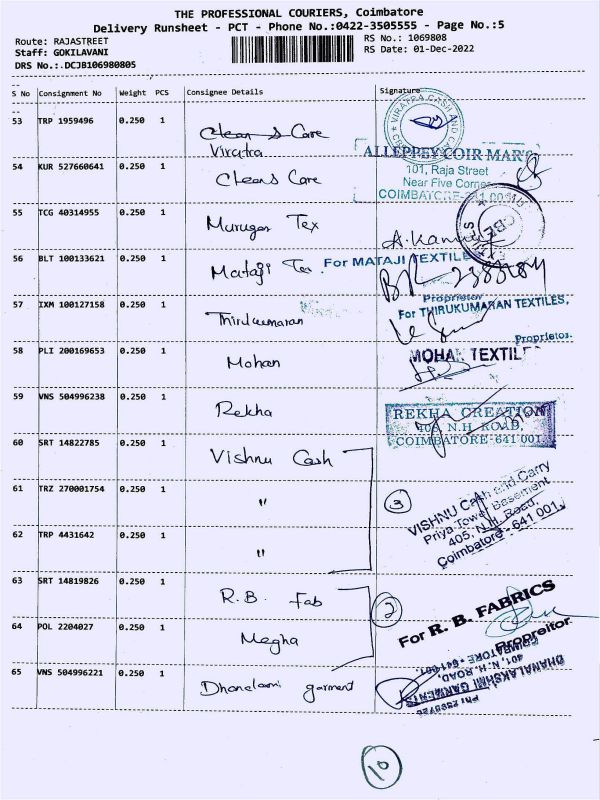 THE PROFESSIONAL COURIERS, Coimbatore
Delivery Runsheet - PCT - Phone No.:0422-3505555 - Page No.:5
Route: RAJASTREET
Staff: GOKILAVANI
DRS No.:.DCJB106980805
RS No.: 1069808
RS Date: 01-Dec-2022
S No Consignment No Weight PCS Consignee Details Signature
53 TRP 1959496 0.250 1 Clean & Care
Viratra
VIRATRA CASH AND
54 KUR 527660641 0.250 1 Clean & Care
ALLEPPEY COIR MARG
101, Raja Street
Near Five Corner
COIMBATORE-641 001
55 TCG 40314955 0.250 1 Murugan Tex
CBE
56 BLT 100133621 0.250 1 Mataji Tex
For MATAJI TEXTILE
Proprietor
57 IXM 100127158 0.250 1 Thirukumaran
For THIRUKUMARAN TEXTILES,
Proprietor
58 PLI 200169653 0.250 1 Mohan
MOHAN TEXTILE
59 VNS 504996238 0.250 1 Rekha
REKHA CREATION
404 N.H. ROAD,
COIMBATORE-641 001
60 SRT 14822785 0.250 1 Vishnu Cash
61 TRZ 270001754 0.250 1 "
3
VISHNU Cash and Carry
Priya Tower Basement
405, N.H. Road,
Coimbatore - 641 001.
62 TRP 4431642 0.250 1 "
63 SRT 14819826 0.250 1 R.B. Fab
2
For R. B. FABRICS
Propreitor
64 POL 2204027 0.250 1 Megha
65 VNS 504996221 0.250 1 Dhanelaxmi garment
DHANALAKSHMI GARMENTS
401, N. H. ROAD,
COIMBATORE - 641 001.
10